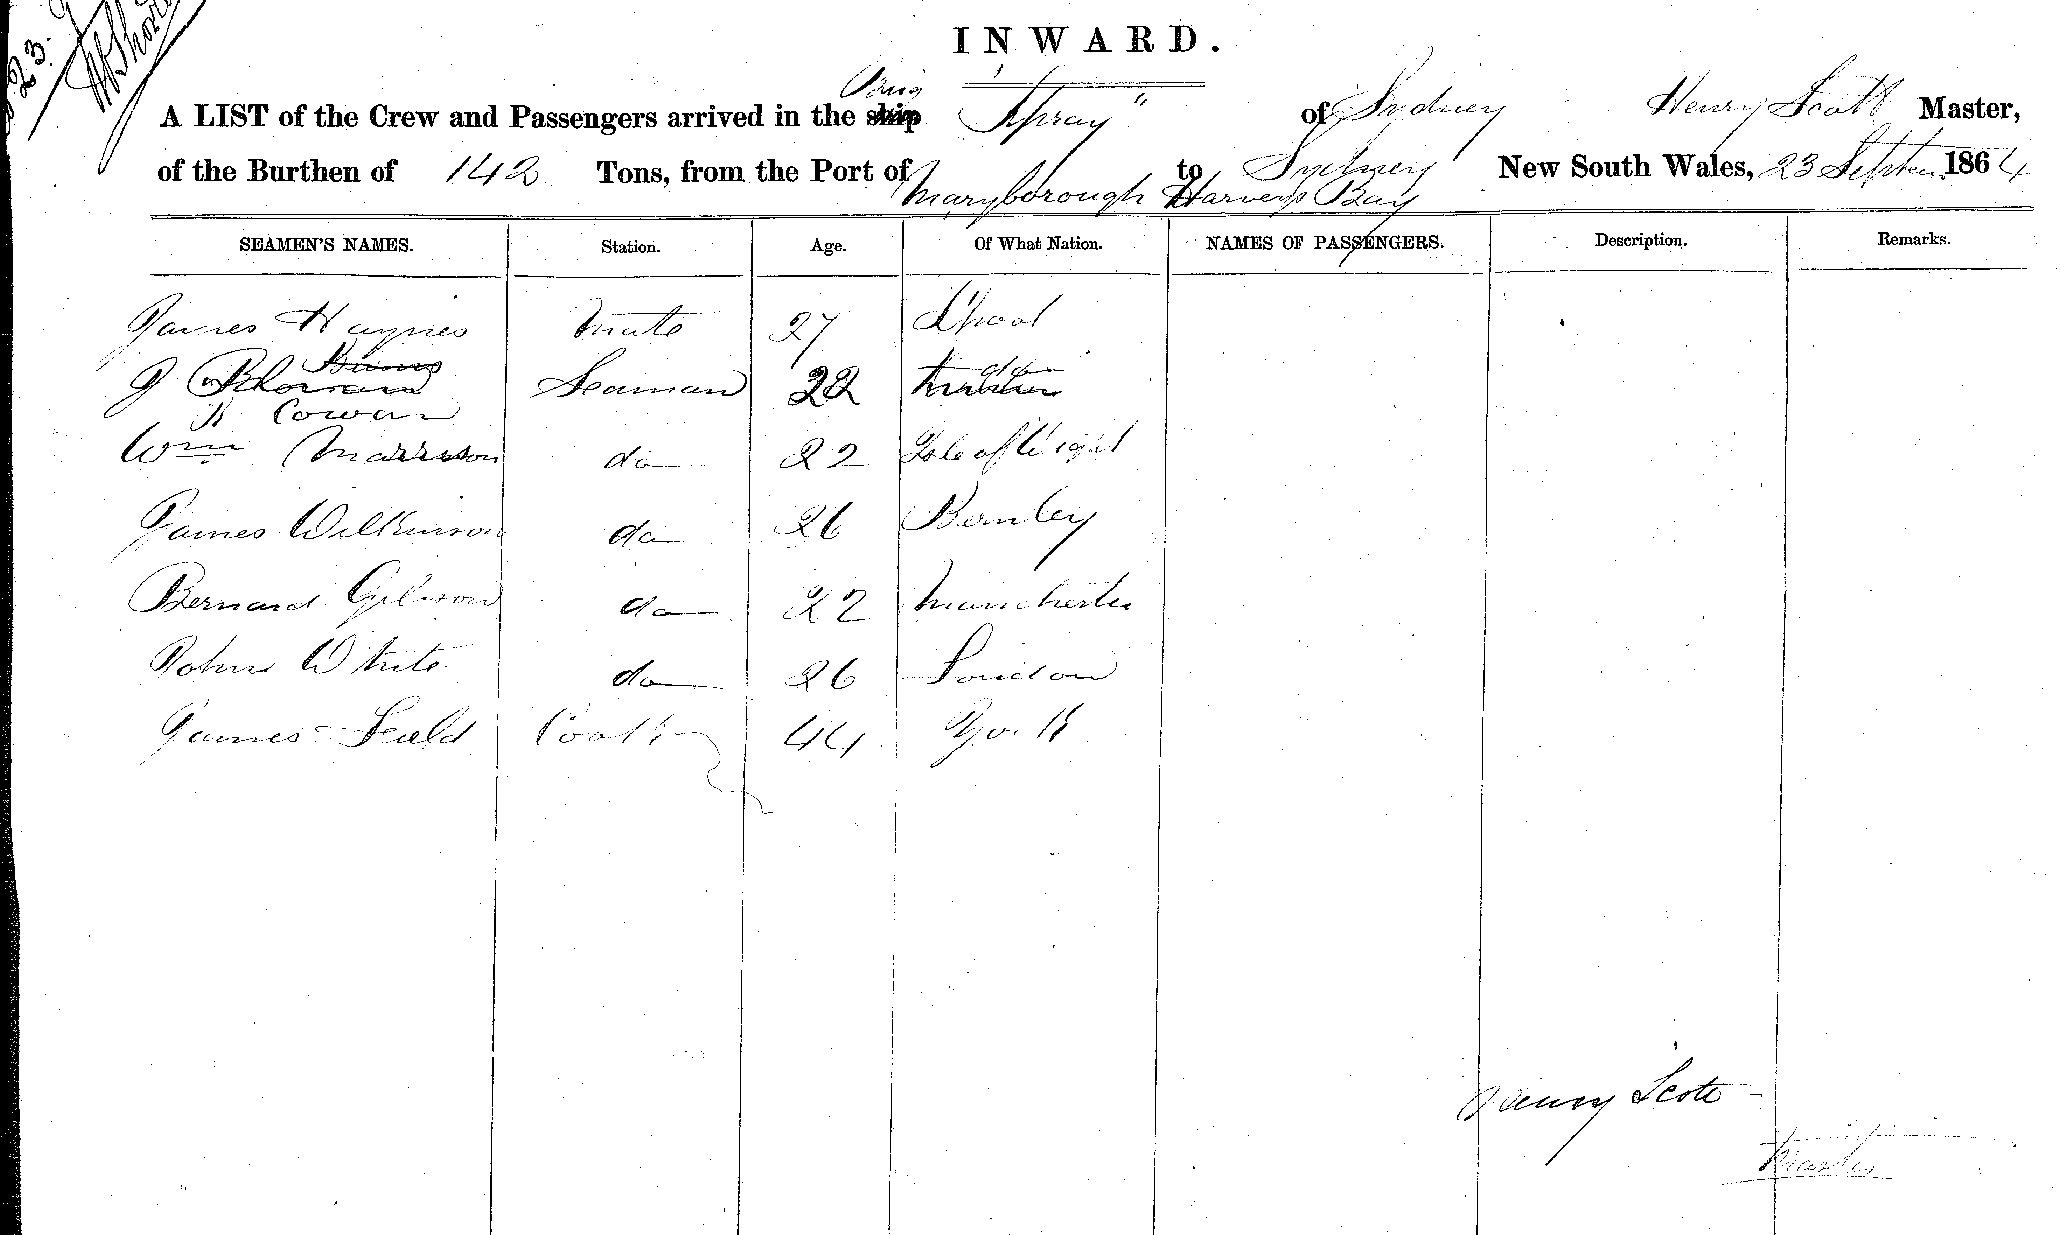 23.
INWARD.
Brig
A LIST of the Crew and Passengers arrived in the ship "Spray" of Sydney Henry Scott Master,
of the Burthen of 142 Tons, from the Port of Maryborough Harveys Bay to Sydney New South Wales, 23 Septem 1864
SEAMEN'S NAMES. Station. Age. Of What Nation. NAMES OF PASSENGERS. Description. Remarks.
James Haynes Mate 27 L'pool
J Seaman 22 do
R Cowan
Wm Marrison do 22 Isle of Wight
James Wilkinson do 26 Bernley
Bernard Gibson do 22 Manchester
John White do 26 London
James Seald Cook 44 York
Henry Scott
Master